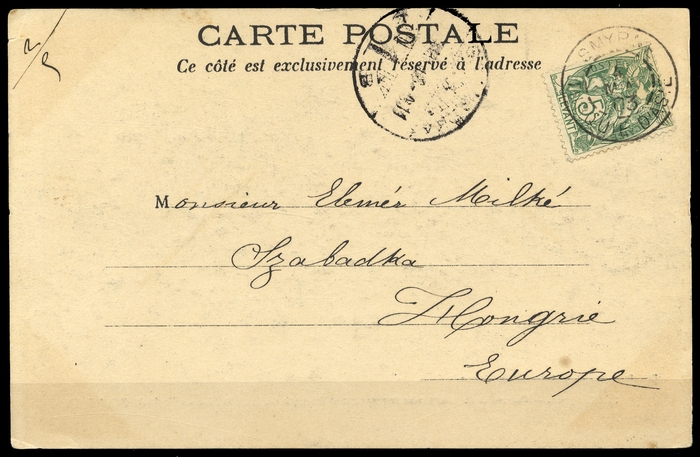 2/5
CARTE POSTALE
Ce côté est exclusivement réservé à l'adresse
SMYRNE
5
LEVANT
Monsieur Elemér Milkó
Szabadka
Hongrie
Europe